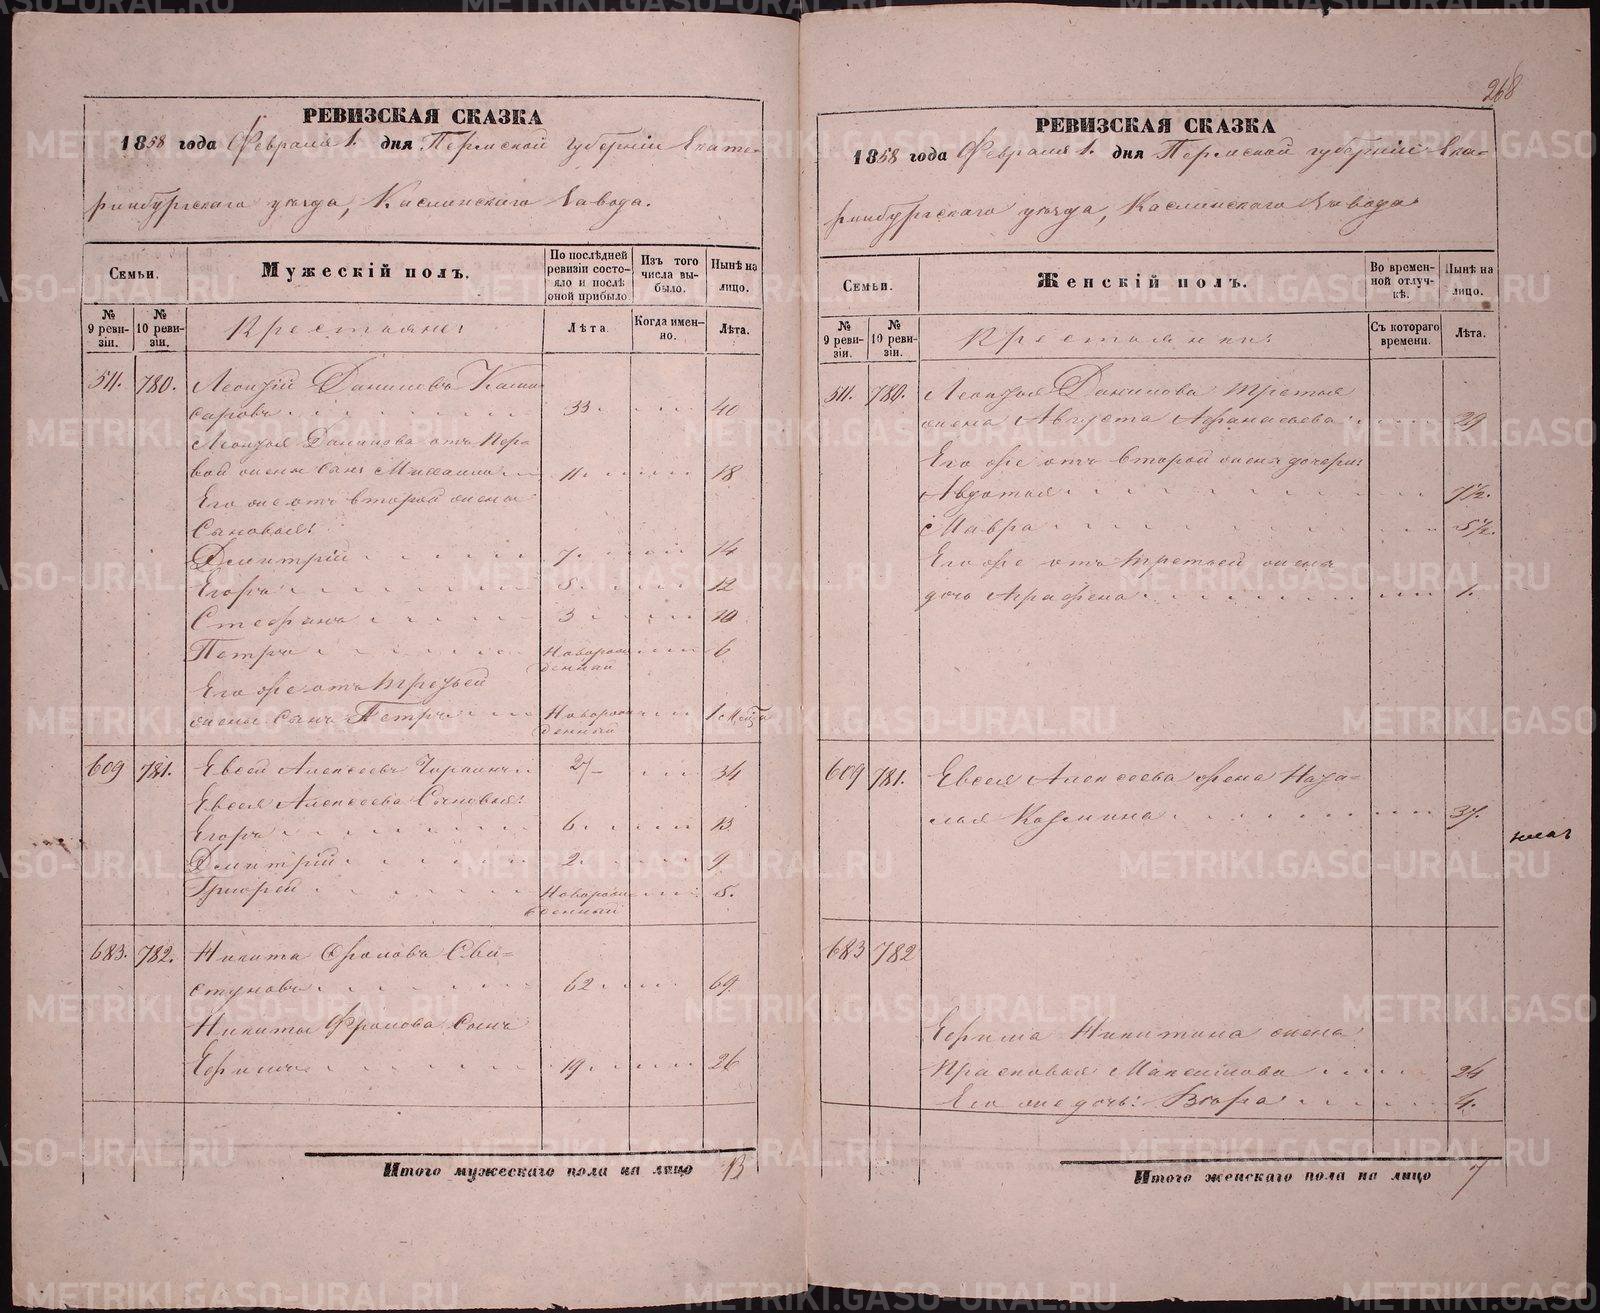 268
РЕВИЗСКАЯ СКАЗКА
1858 года Февраля 1. дня Пермской губерніи Екате-
ринбургскаго уѣзда, Каслинскаго Завода.
Семьи.
Мужескій полъ.
По послѣдней ревизіи состояло и послѣ оной прибыло
Изъ того числа выбыло.
Нынѣ на лицо.
№ 9 ревизіи.
№ 10 ревизіи.
Крестьяне:
Лѣта.
Когда именно.
Лѣта.
511. 780. Даниловъ
саровъ 33 40
Данилова отъ пер-
вой жены сынъ Михаило 11 18
Его же отъ второй жены
Сыновья:
Дмитрій 7. 14
Егоръ 5 12
Стефанъ 3 10
Петръ Новорожденный 6
Его же отъ третьей
жены сынъ Петръ Новорожденный 1 мѣсяца
609 781. Евсей Алексѣевъ 27 34
Евсея Алексѣева Сыновья:
Егоръ 6 13
Дмитрій 2. 9
Григорій Новорожденный 5.
683. 782. Никита Фроловъ Сви-
стуновъ 62 69
Никиты Фролова сынъ
Ефимъ 19 26
Итого мужескаго пола на лицо 13
РЕВИЗСКАЯ СКАЗКА
1858 года Февраля 1. дня Пермской губерніи Ека-
ринбургскаго уѣзда, Каслинскаго Завода
Семьи.
Женскій полъ.
Во временной отлучкѣ.
Нынѣ на лицо.
№ 9 ревизіи.
№ 10 ревизіи.
Крестьянки:
Съ котораго времени.
Лѣта.
511. 780. Данилова третья
жена Августа Афанасьева 29
Его же отъ второй жены дочери:
Авдотья 7½.
Мавра 5½.
Его же отъ третьей жены
дочь Аграфена 1.
609 781. Евсея Алексѣева жена Ната-
лья Козмина 37.
683 782
Ефима Никитина жена
Прасковья Максимова 24
Его же дочь: 4.
Итого женскаго пола на лицо 7
METRIKI.GASO-URAL.RU